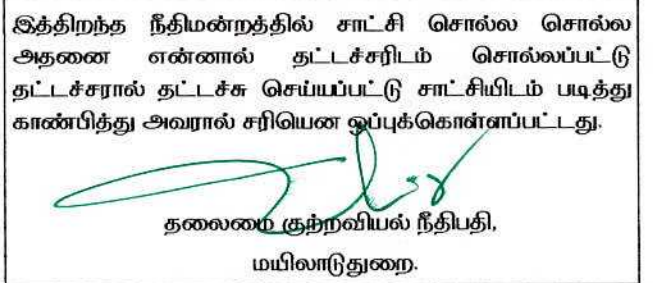 இத்திறந்த நீதிமன்றத்தில் சாட்சி சொல்ல சொல்ல
அதனை என்னால் தட்டச்சரிடம் சொல்லப்பட்டு
தட்டச்சரால் தட்டச்சு செய்யப்பட்டு சாட்சியிடம் படித்து
காண்பித்து அவரால் சரியென ஒப்புக்கொள்ளப்பட்டது.
தலைமை குற்றவியல் நீதிபதி,
மயிலாடுதுறை.